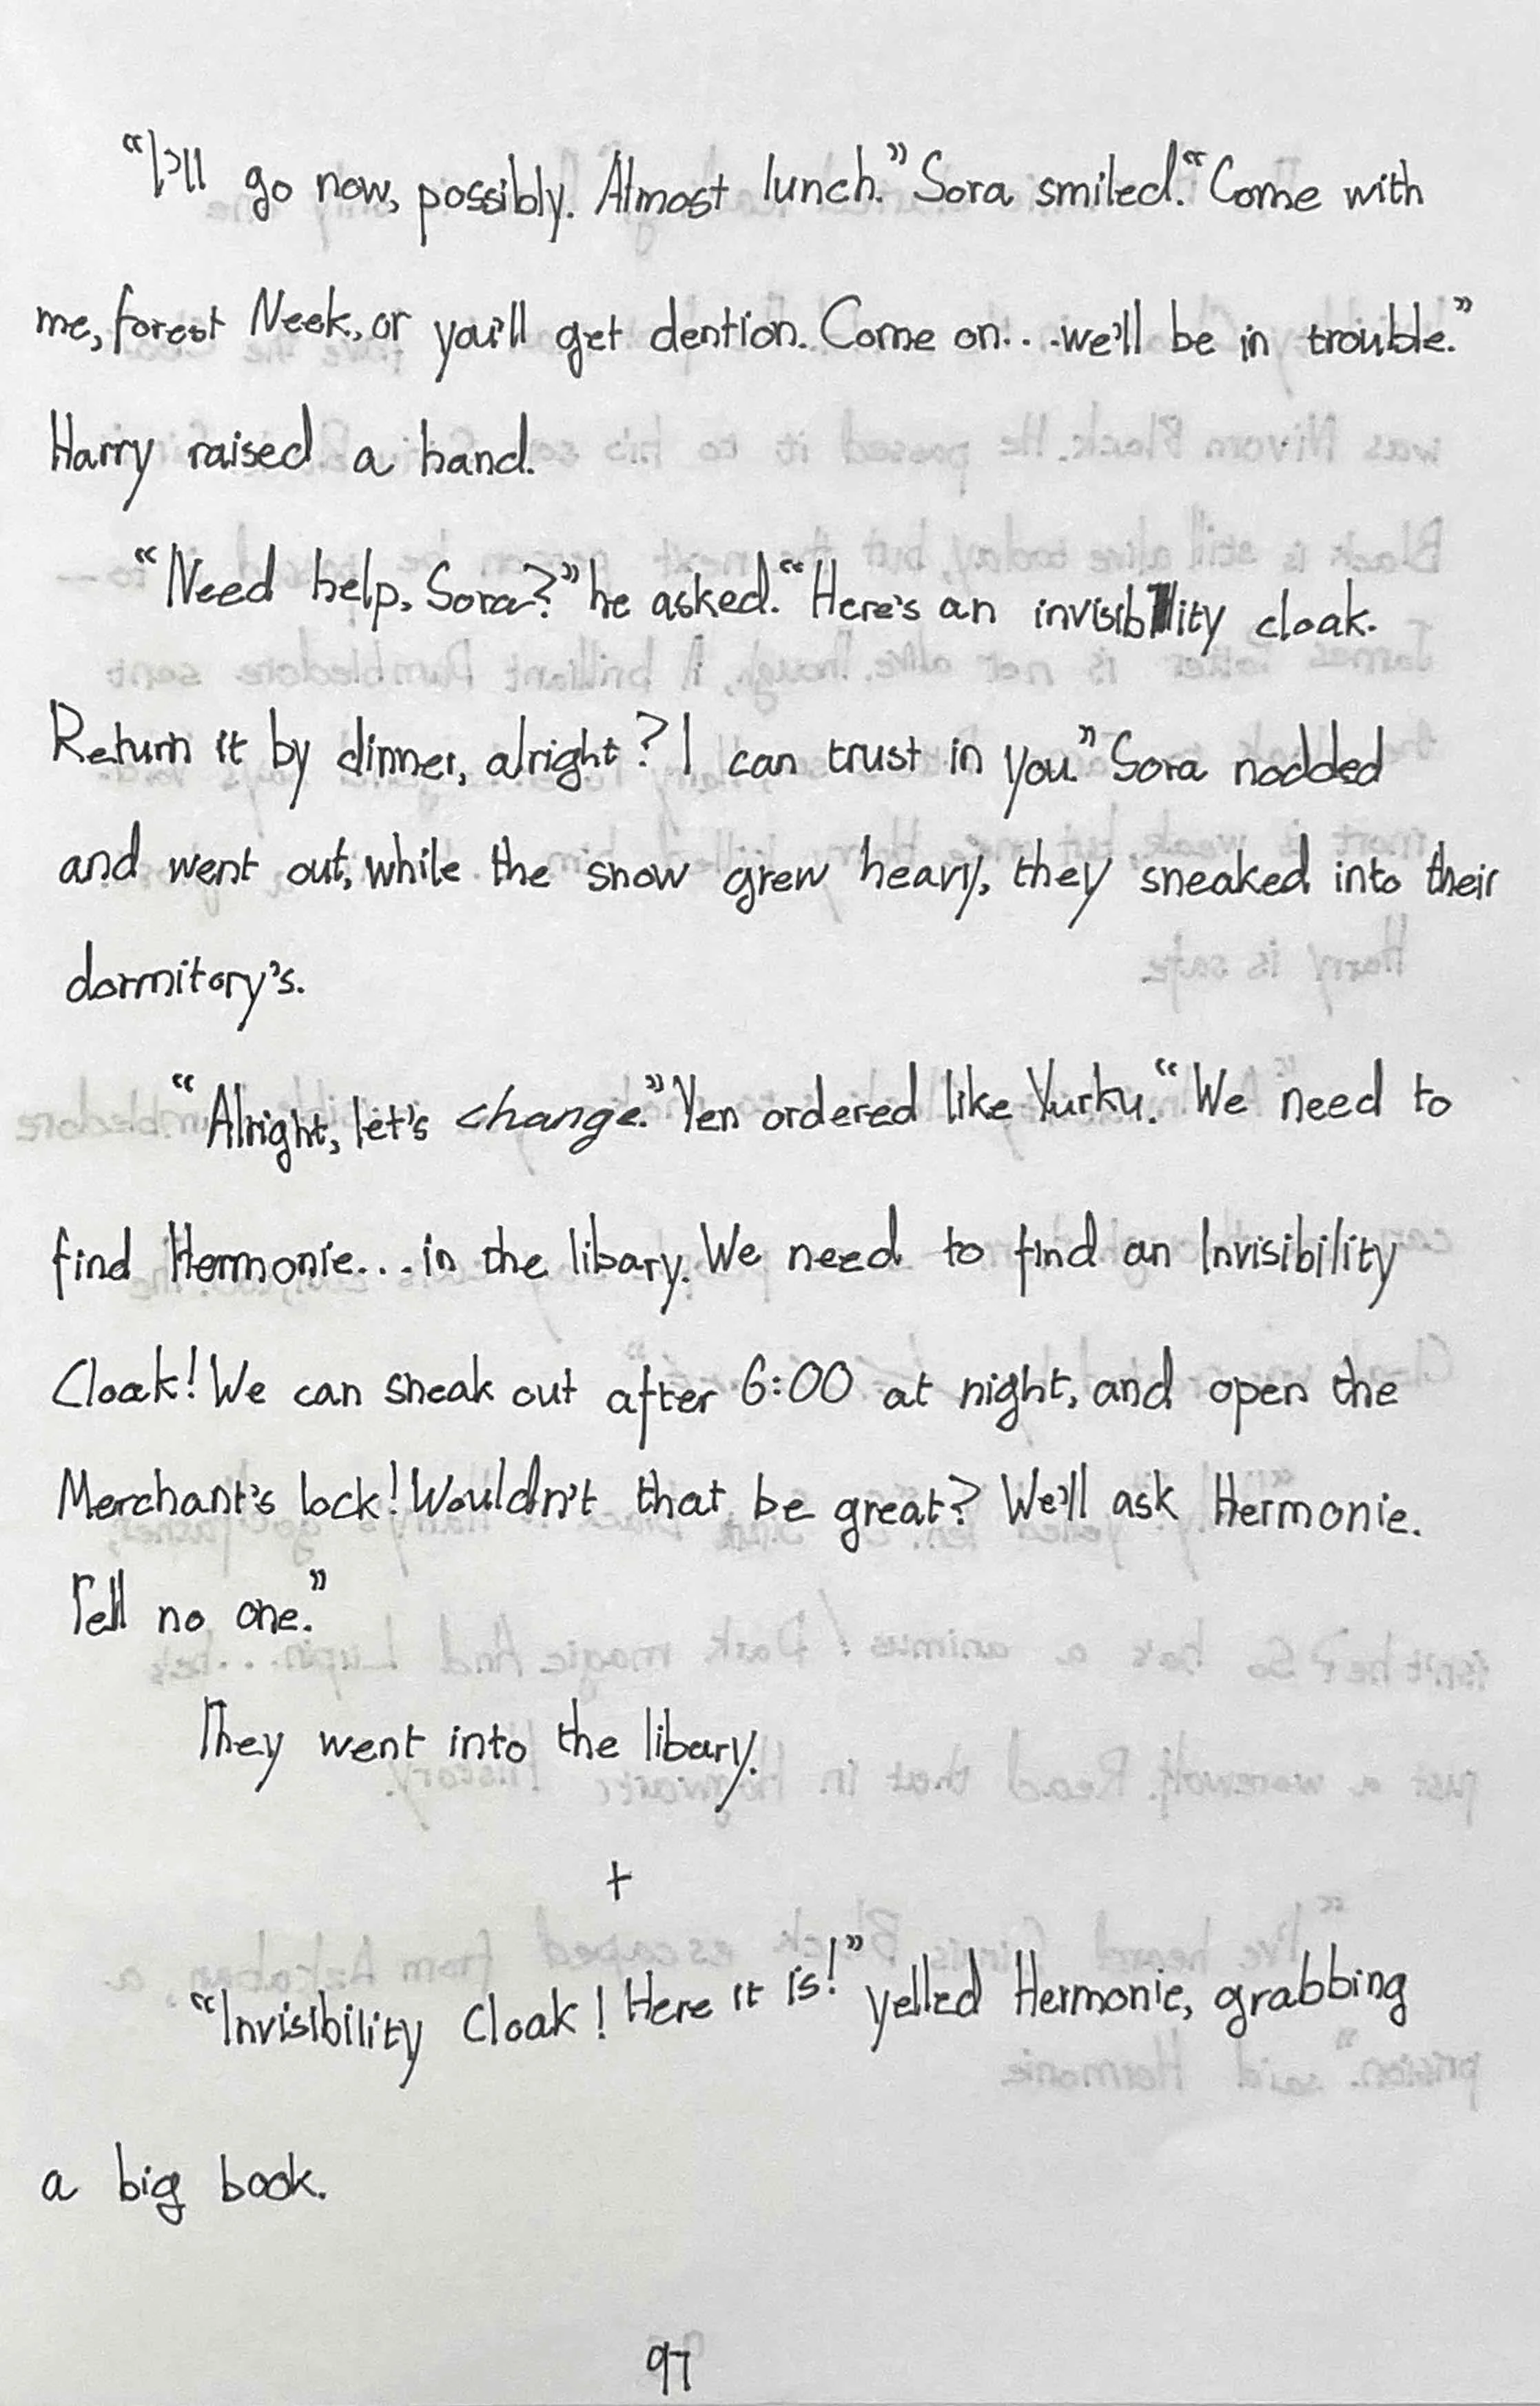 “I'll go now, possibly. Almost lunch.” Sora smiled. “Come with
me, forest Neek, or you'll get dention. Come on... we'll be in trouble.”
Harry raised a hand.
“Need help, Sora?” he asked. “Here's an invisibility cloak.
Return it by dinner, alright? I can trust in you.” Sora nodded
and went out, while the snow grew heavy, they sneaked into their
dormitory's.
“Alright, let's change.” Yen ordered like Yurku. “We need to
find Hermonie... in the libary. We need to find an Invisibility
Cloak! We can sneak out after 6:00 at night, and open the
Merchant's lock! Wouldn't that be great? We'll ask Hermonie.
Tell no one.”
They went into the libary.
+
“Invisibility Cloak! Here it is!” yelled Hermonie, grabbing
a big book.
97